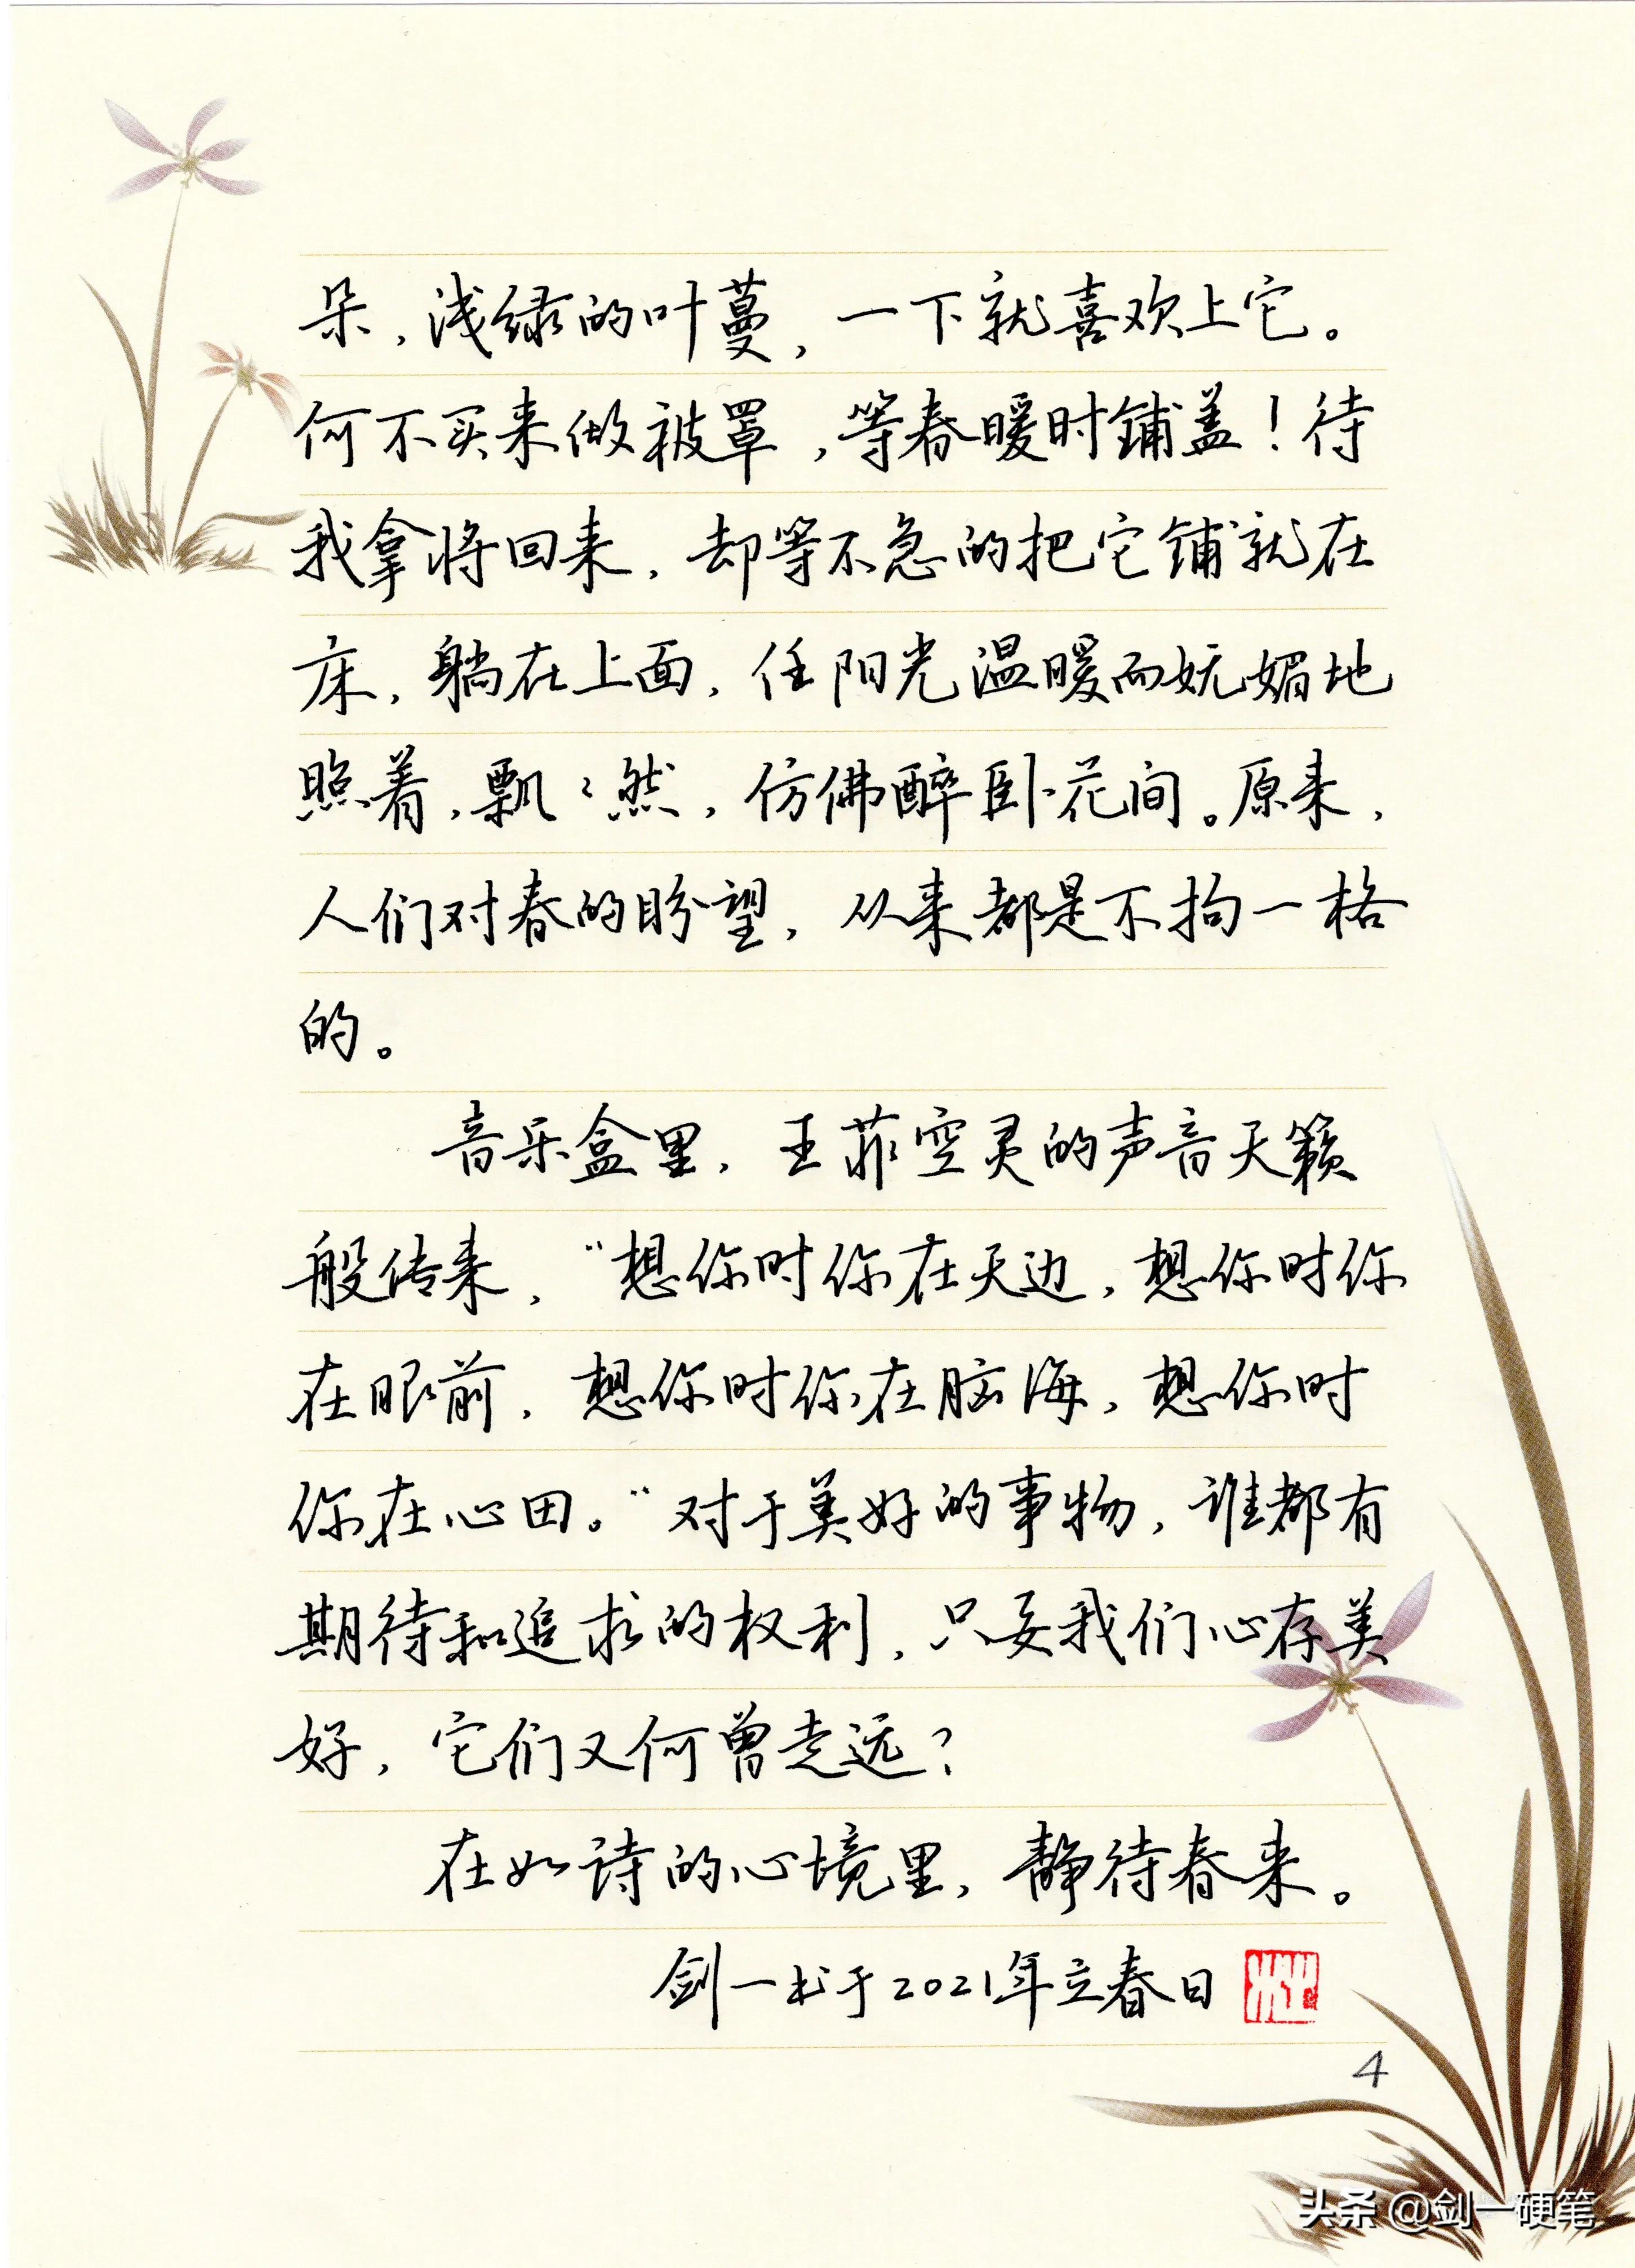 朵，浅绿的叶蔓，一下就喜欢上它。
何不买来做被罩，等春暖时铺盖！待
我拿将回来，却等不急的把它铺就在
床，躺在上面，任阳光温暖而妩媚地
照着，飘飘然，仿佛醉卧花间。原来，
人们对春的盼望，从来都是不拘一格
的。
音乐盒里，王菲空灵的声音天籁
般传来，“想你时你在天边，想你时你
在眼前，想你时你在脑海，想你时
你在心田。”对于美好的事物，谁都有
期待和追求的权利，只要我们心存美
好，它们又何曾走远？
在如诗的心境里，静待春来。
剑一书于2021年立春日
4
头条 @剑一硬笔